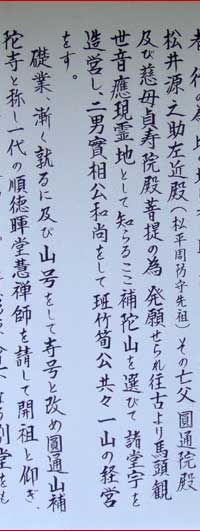 松井源之助左近殿(松平周防守先祖)その亡父 圓通院殿
及び慈母貞寿院殿菩提の為 発願せられ往古より馬頭観
世音應現霊地として知らるここ補陀山を選びて諸堂宇を
造営し、二男實相公和尚をして班竹筍公共々一山の経営
をす。
礎業、漸く就るに及び山号をして寺号と改め圓通山補
陀寺と称し一代の順徳暉堂慧禅師を請して開祖と仰ぎ、